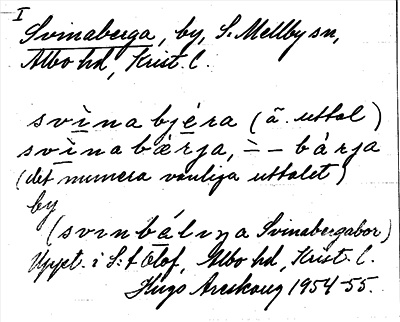 I
Svinaberga, by, S. Mellby sn,
Albo hd, Krist. l.
svìnabjéra (ä. uttal)
svìnabærja, ÷ – bárja
(det numera vanliga uttalet)
by
(svinbáliŋa Svinabergabor)
Uppt. i S:t Olof, Albo hd, Krist. l.
Hugo Areskoug 1954-55.